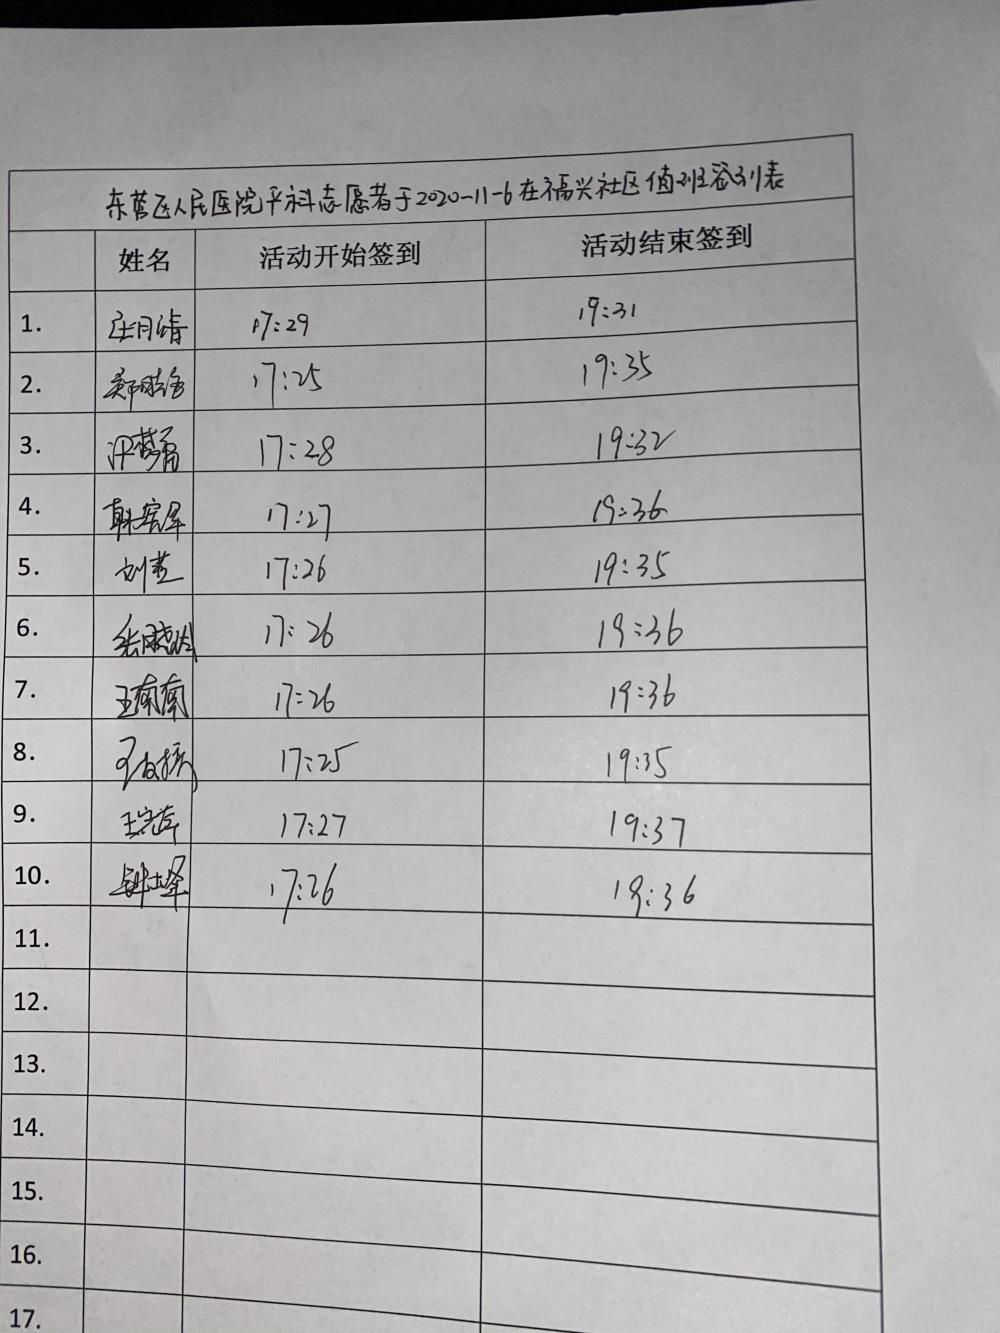 东营区人民医院平科志愿者于2020-11-6在福兴社区值班签到表
姓名 活动开始签到 活动结束签到
1. 庄月清 17:29 19:31
2. 17:25 19:35
3. 17:28 19:32
4. 17:27 19:36
5. 17:26 19:35
6. 17:26 19:36
7. 王南南 17:26 19:36
8. 17:25 19:35
9. 17:27 19:37
10. 17:26 19:36
11.
12.
13.
14.
15.
16.
17.